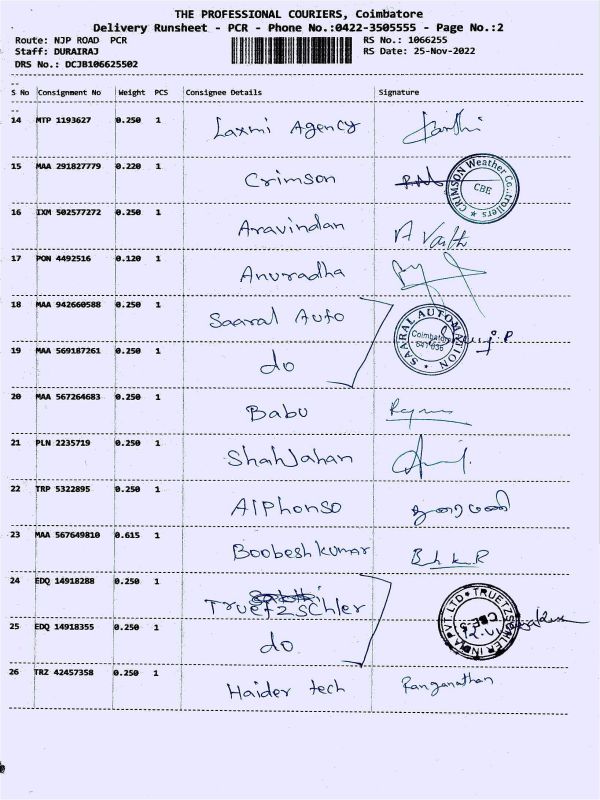 THE PROFESSIONAL COURIERS, Coimbatore
Delivery Runsheet - PCR - Phone No.:0422-3505555 - Page No.:2
Route: NJP ROAD PCR RS No.: 1066255
Staff: DURAIRAJ RS Date: 25-Nov-2022
DRS No.: DCJB106625502
S No Consignment No Weight PCS Consignee Details Signature
14 MTP 1193627 0.250 1 Laxmi Agency
15 MAA 291827779 0.220 1 Crimson
CRIMSON Weather Co..trollers CBE
16 IXM 502577272 0.250 1 Aravindan
17 PON 4492516 0.120 1 Anuradha
18 MAA 942660588 0.250 1 Saaral Auto
SAARAL AUTOMATION Coimbatore 641 035
19 MAA 569187261 0.250 1 do
20 MAA 567264683 0.250 1 Babu
21 PLN 2235719 0.250 1 ShahJahan
22 TRP 5322895 0.250 1 Alphonso
23 MAA 567649810 0.615 1 Boobesh kumar
24 EDQ 14918288 0.250 1 Truetzschler
TRUETZSCHLER INDIA PVT. LTD
25 EDQ 14918355 0.250 1 do
26 TRZ 42457358 0.250 1 Haider tech Ranganathan